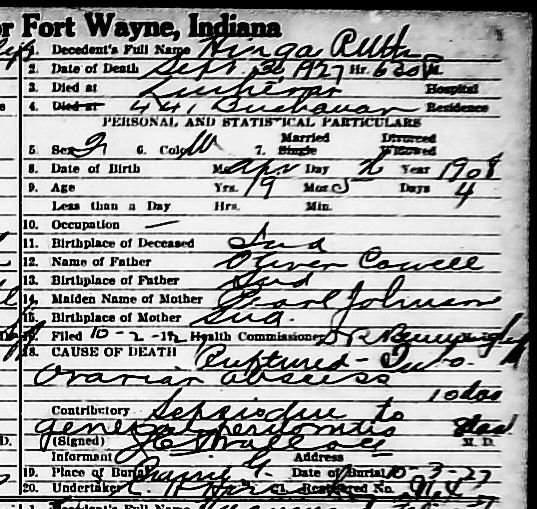 r Fort Wayne, Indiana
1. Decedent's Full Name Hinga Ruth
2. Date of Death Sept. 30, 1927 Hr. 630
3. Died at Lutheran Hospital
4. Died at 441 Buchanan Residence
PERSONAL AND STATISTICAL PARTICULARS
5. Sex F 6. Color W 7. Married Single Divorced Widowed
8. Date of Birth Mo. Apr Day 26 Year 1908
9. Age Yrs. 19 Mos 5 Days 4
Less than a Day Hrs. Min.
10. Occupation —
11. Birthplace of Deceased Ind
12. Name of Father Oliver Cowell
13. Birthplace of Father Ind
14. Maiden Name of Mother Pearl Johnson
15. Birthplace of Mother Ind.
Filed 10-2-192 Health Commissioner
18. CAUSE OF DEATH Ruptured - Tubo
Ovarian abscess
10 das
Contributory Sepsis due to
general peritonitis
(Signed) Wallace M. D.
Informant Address
19. Place of Burial Prairie G. Date of Burial 10-3-27
20. Undertaker Registered No.